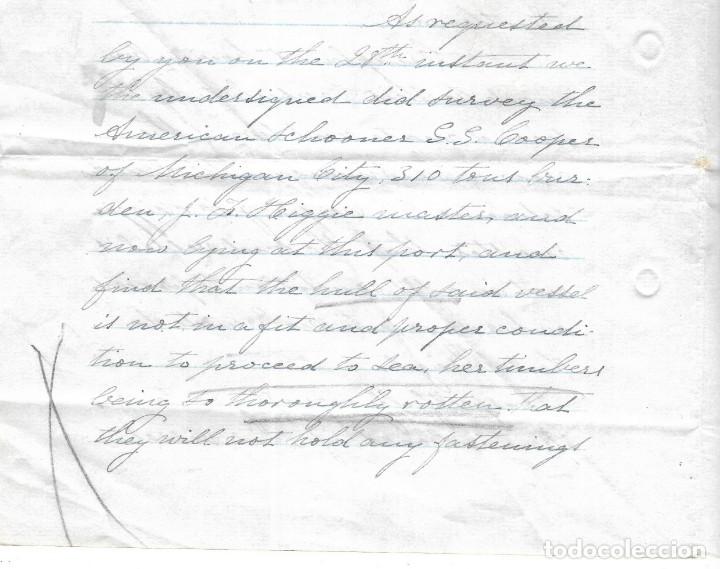 As requested
by you on the 28th instant we
the undersigned did survey the
American schooner S.S. Cooper
of Michigan City, 310 tons bur:
den, J. A. Higgie master, and
now lying at this port, and
find that the hull of said vessel
is not in a fit and proper condi-
tion to proceed to sea, her timbers
being so thoroughly rotten that
they will not hold any fastenings
todocoleccion.net